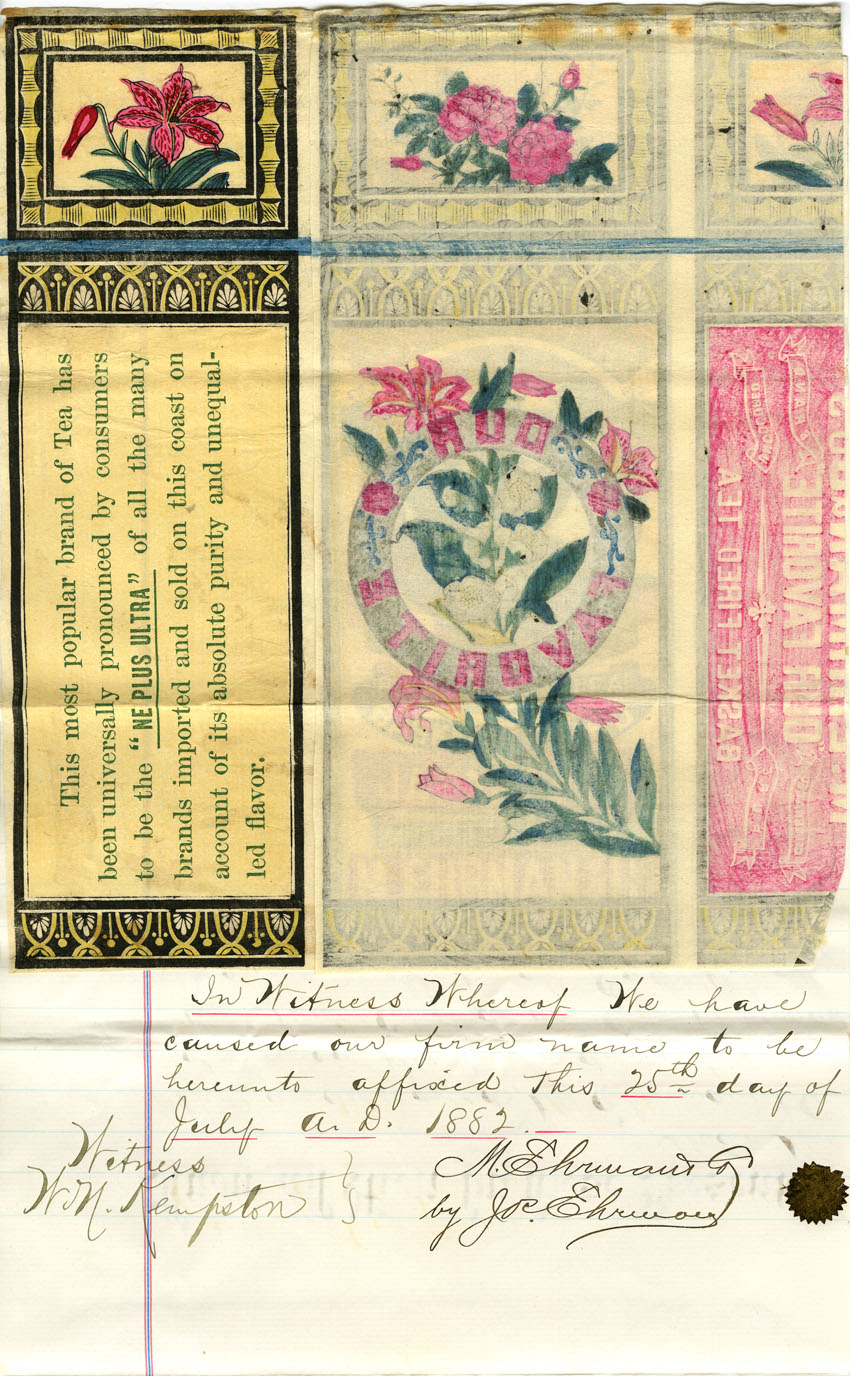 This most popular brand of Tea has
been universally pronounced by consumers
to be the "NE PLUS ULTRA" of all the many
brands imported and sold on this coast on
account of its absolute purity and unequal-
led flavor.
OUR
FAVORITE
OUR FAVORITE
BASKET FIRED TEA
In Witness Whereof We have
caused our firm name to be
hereunto affixed this 25th day of
July A.D. 1882.
Witness
W.H. Kempston
M. Ehrman & Co
by Jos. Ehrman